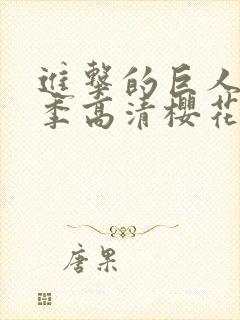 進擊的巨人
季高清櫻花
唐果